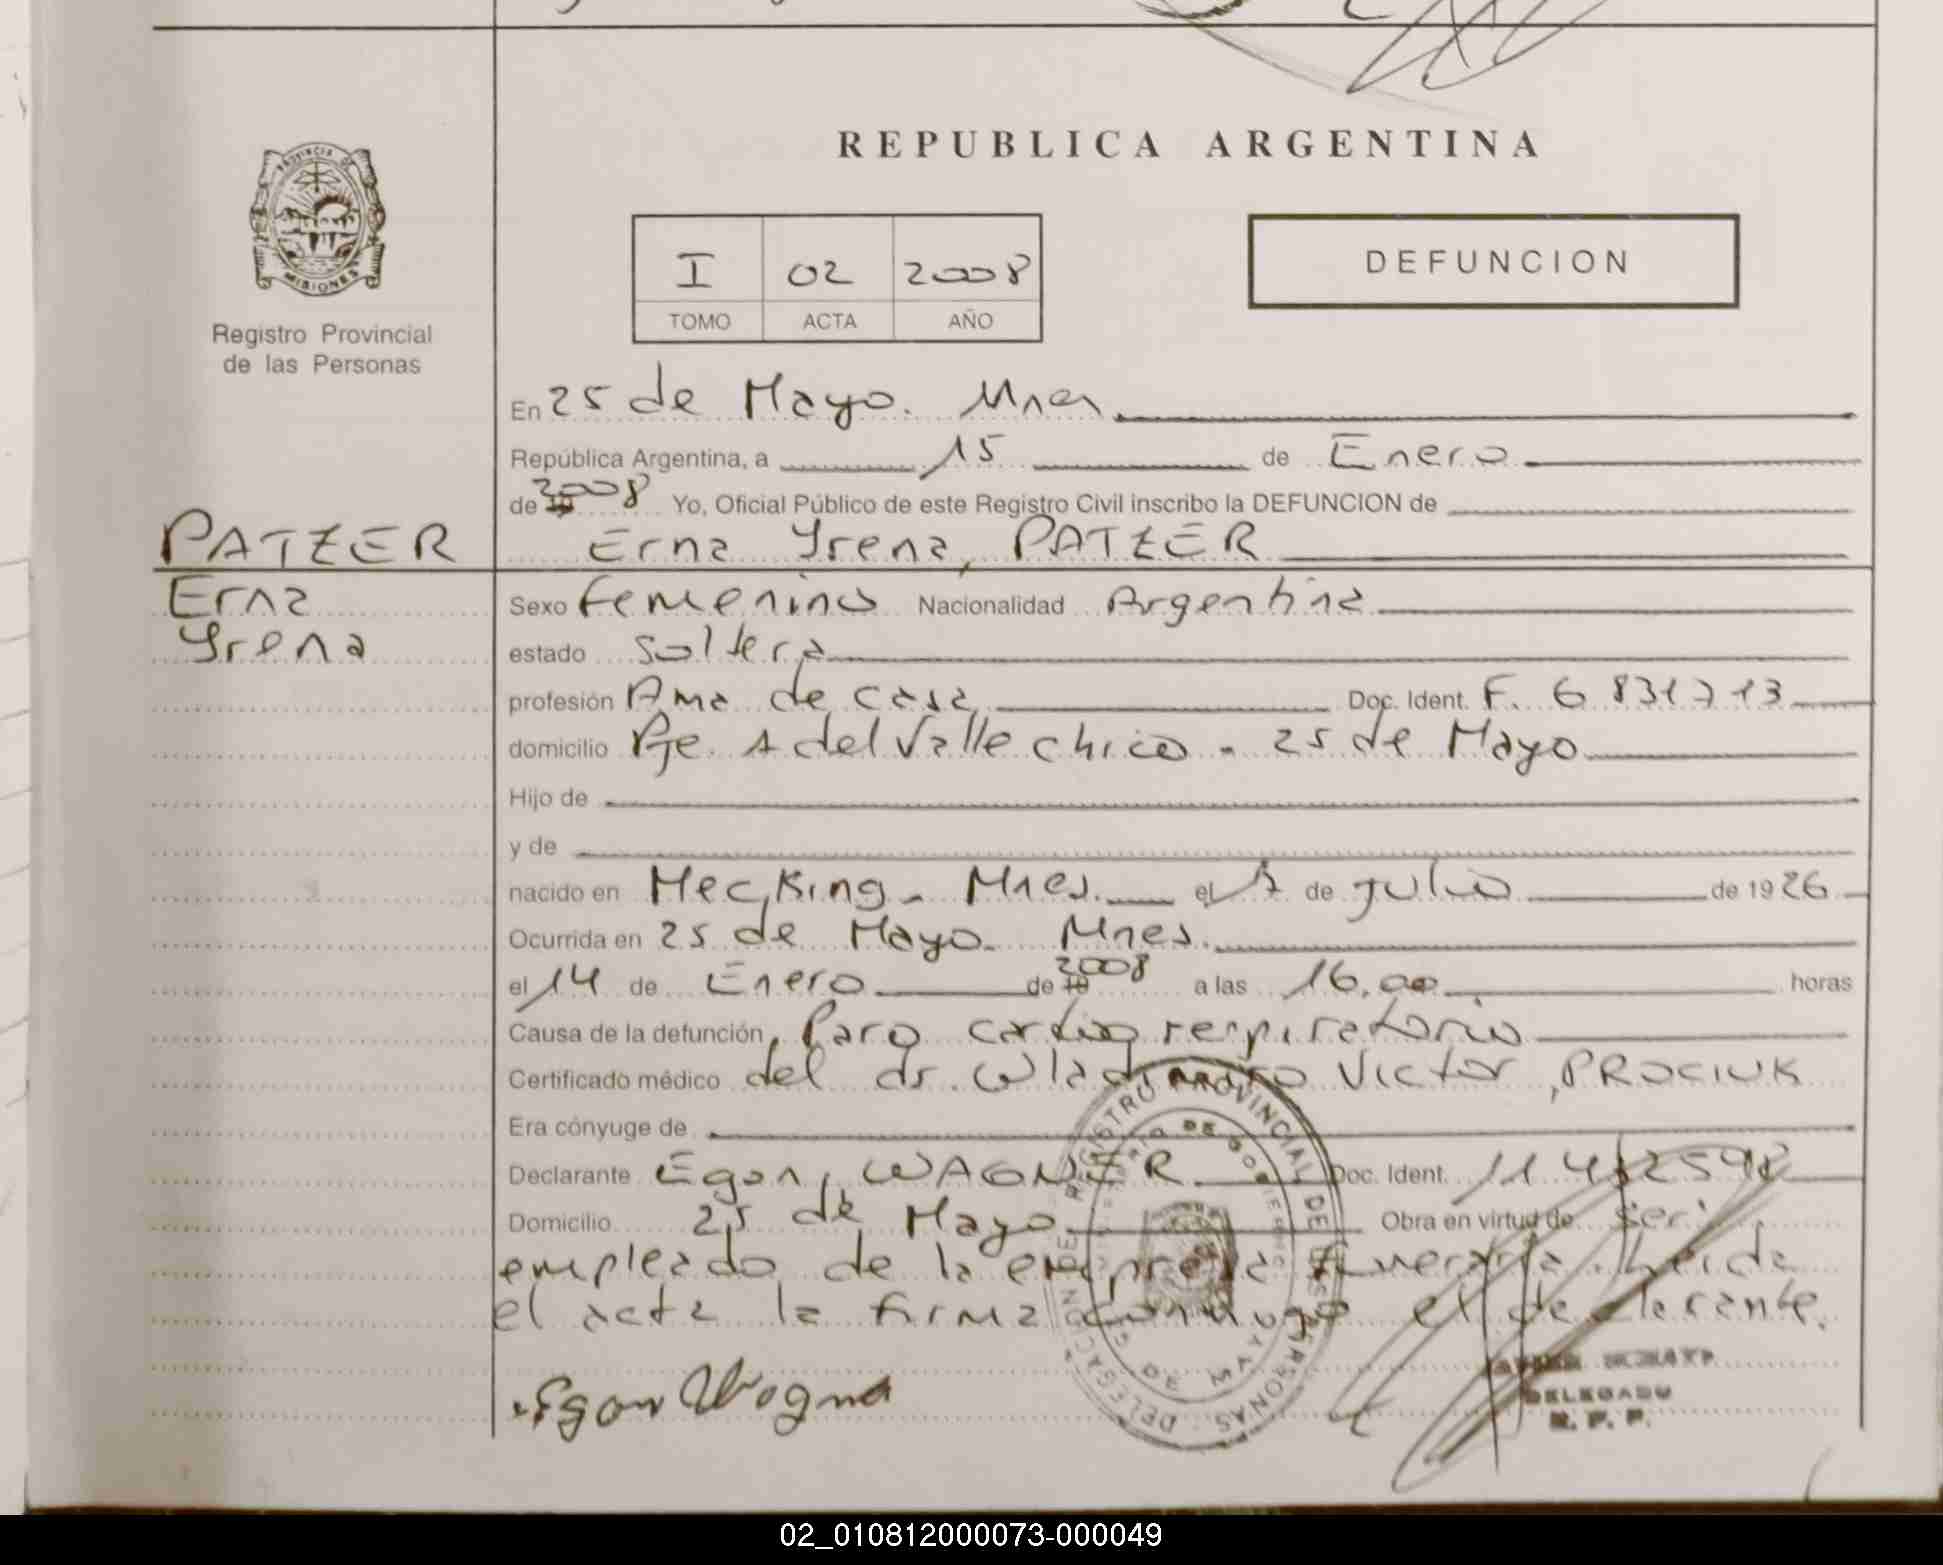 PROVINCIA DE
MISIONES
Registro Provincial
de las Personas
REPUBLICA ARGENTINA
I 02 2008
TOMO ACTA AÑO
DEFUNCION
En 25 de Mayo. Mnes
República Argentina, a 15 de Enero
de 2008 Yo, Oficial Público de este Registro Civil inscribo la DEFUNCION de
PATZER Erna Yrena, PATZER
Erna Sexo Femenino Nacionalidad Argentina
Yrena estado Soltera
profesión Ama de casa Doc. Ident. F. 6 831713
domicilio Pje. A del Valle chico - 25 de Mayo
Hijo de
y de
nacido en Mecking - Mnes. el de Julio de 1926
Ocurrida en 25 de Mayo. Mnes.
el 14 de Enero de 2008 a las 16,00 horas
Causa de la defunción Paro cardio respiratorio
Certificado médico del dr. Wladimiro Victor, PROCIUK
Era cónyuge de
Declarante Egon, WAGNER Doc. Ident.
Domicilio 25 de Mayo Obra en virtud de ser
empleado de la empresa funeraria. Leida
el acta la firma conmigo el declarante.
Egon Wagner
REGISTRO PROVINCIAL DE LAS PERSONAS · DELEGACION DE
25 DE MAYO
DELEGADO
R. P. P.
02_010812000073-000049